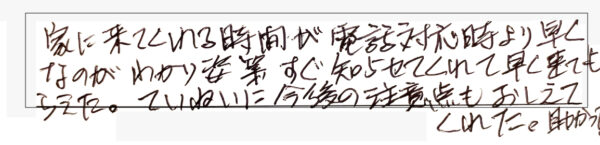 家に来てくれる時間が電話対応時より早く
なるのがわかり次第すぐ知らせてくれて早く来ても
らえた。ていねいに今後の注意点もおしえて
くれた。助か